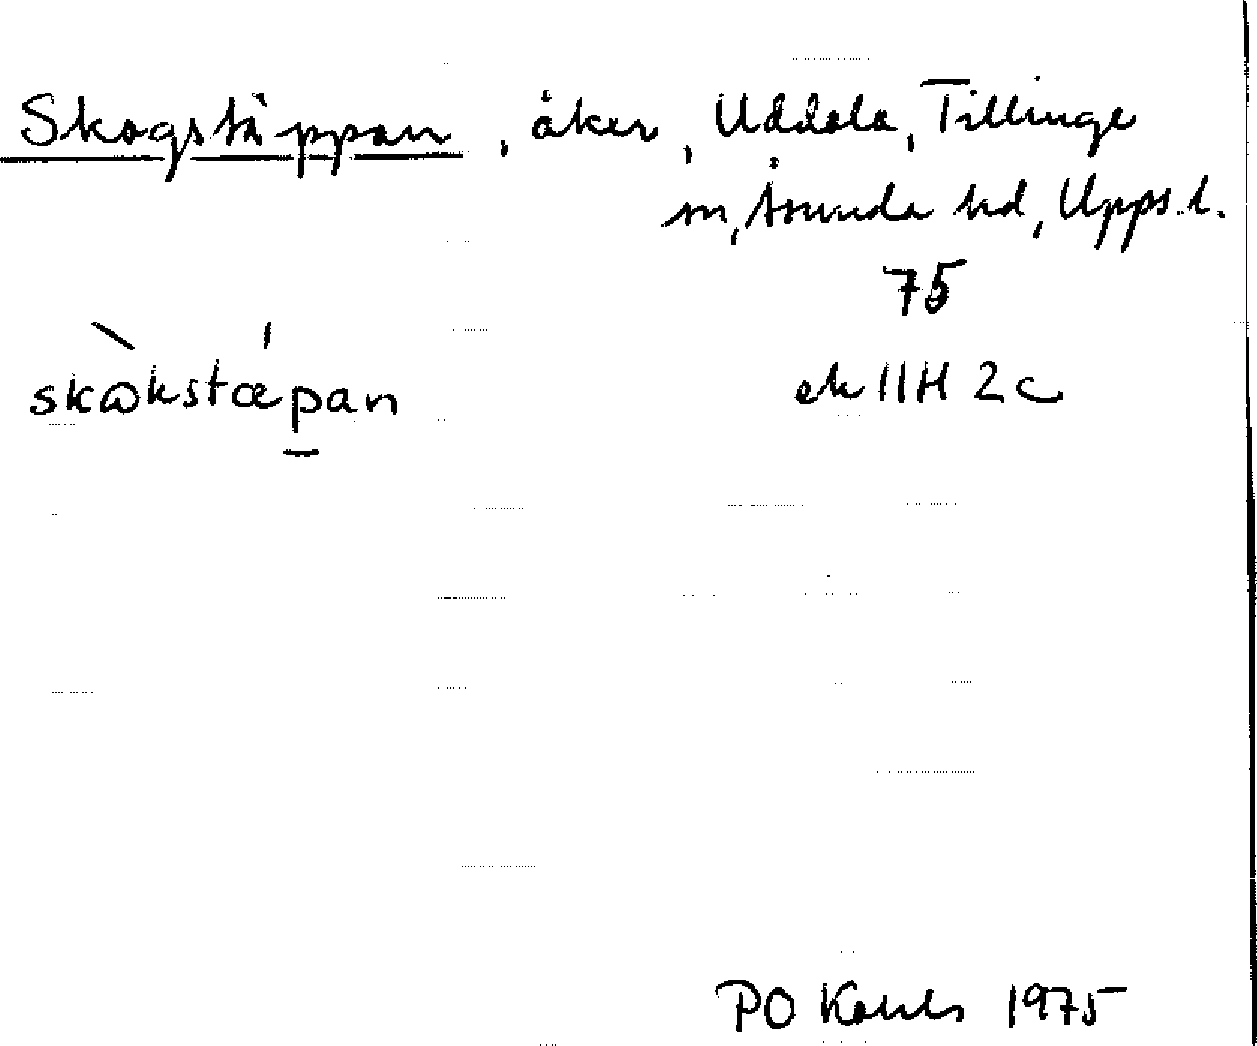 Skogstäppan, åker, Uddola, Tillinge
sn, Åsunda hd, Upps. l.
75
skωkstæpan
ek 11H 2c
PO 1975